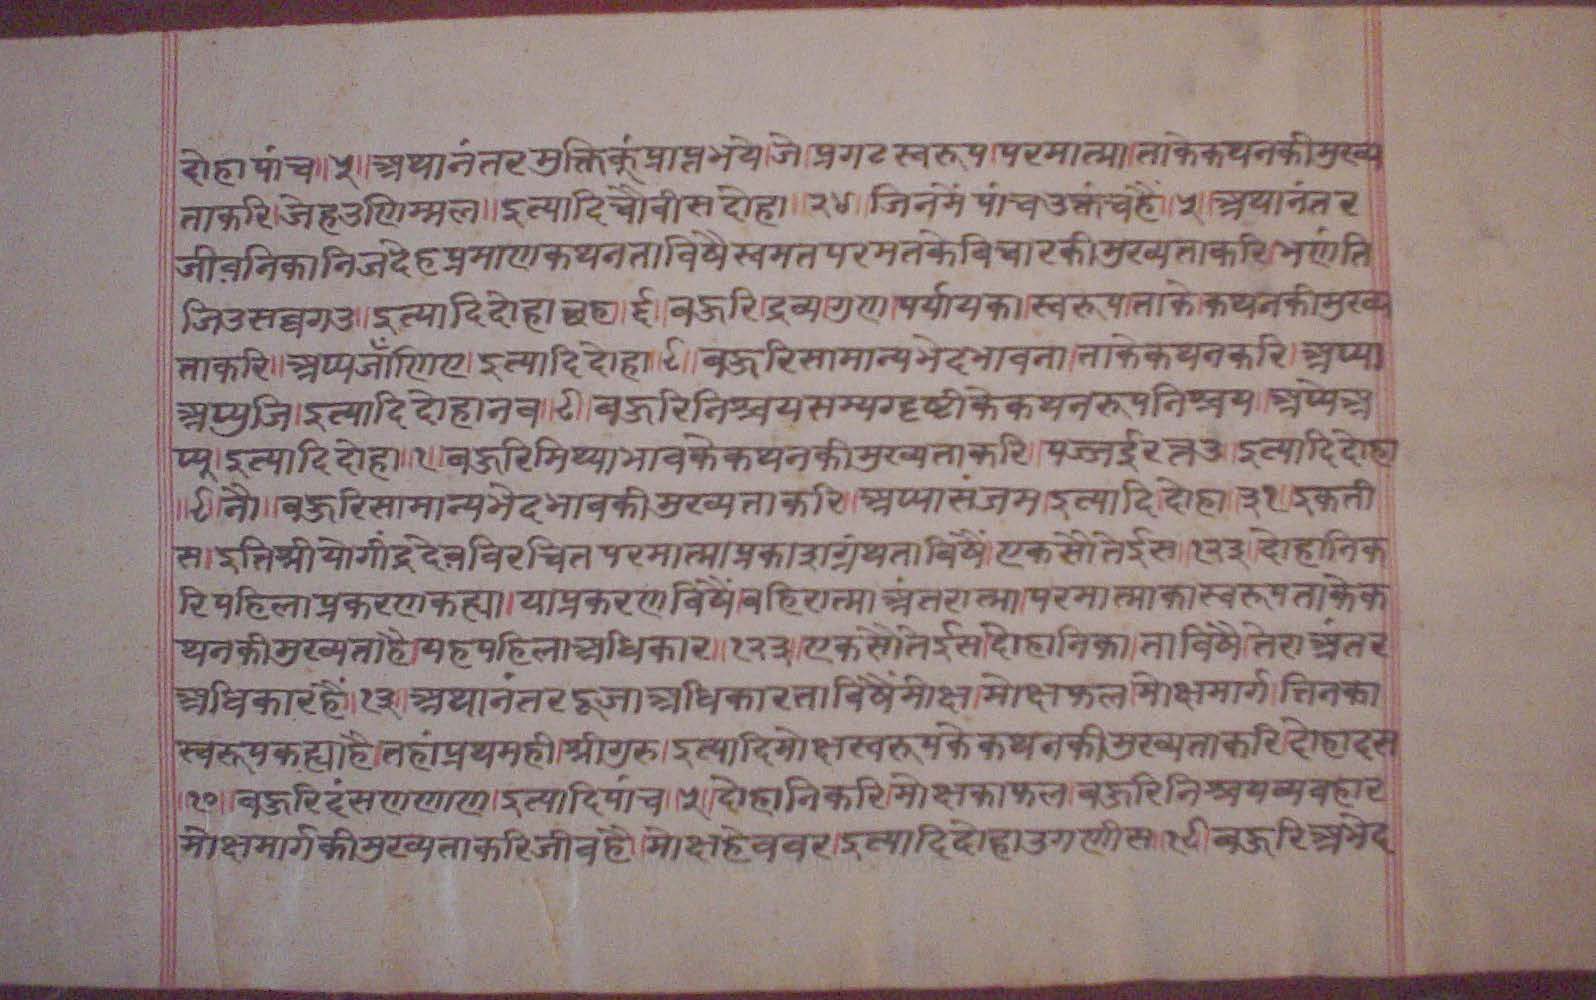 दोहा पांच॥५॥अथानंतर मुक्तिकूं प्राप्तभये।जे प्रगट स्वरूप।परमात्मा।ताके कथनकी मुख्य
ताकरि।जेहउणिम्मल॥इत्यादि चौवीस दोहा॥२४॥जिनमें पांच उक्तंच हैं॥५॥अथानंतर
जीवनिका निजदेह प्रमाण कथन ता विषै स्वमत परमतके विचारकी मुख्यता करि।भणंति
जिउ सव्वगउ॥इत्यादि दोहा छह।६।बहुरि।द्रव्य।गुण।पर्यायका।स्वरूप।ताके कथनकी मुख्य
ताकरि॥अप्पजाँणिए।इत्यादि दोहा॥९॥बहुरि सामान्य भेद भावना।ताके कथन करि।अप्पा
अप्पुजि।इत्यादि दोहा नव॥९॥बहुरि निश्चय सम्यग्दृष्टीके कथनरूप निश्चय।अप्पेअ
प्पू।इत्यादि दोहा॥१॥बहुरि मिथ्याभावके कथनकी मुख्यता करि।पज्जईरत्तउ।इत्यादि दोहा
॥९ नौ।बहुरि सामान्य भेद भावकी मुख्यता करि।अप्पासंजम।इत्यादि दोहा।३१।इकती
स।इति श्री योगींद्रदेव विरचित परमात्मा प्रकाश ग्रंथ ता विषैं एकसौ तेईस।१२३।दोहानिक
रि पहिला प्रकरण कह्या।या प्रकरण विषैं।बहिरात्मा अंतरात्मा।परमात्माका स्वरूप ताके क
थनकी मुख्यता है।यह पहिला अधिकार॥१२३॥एकसौ तेईस दोहानिका।ता विषै तेरा अंतर
अधिकार हैं॥१३॥अथानंतर दूजा अधिकार ता विषैं मोक्ष।मोक्षफल।मोक्षमार्ग।तिनका
स्वरूप कह्या है।तहां प्रथमही।श्रीगुरु।इत्यादि मोक्ष स्वरूपके कथनकी मुख्यता करि।दोहा दस
॥१०॥बहुरि दंसणणाण।इत्यादि पांच॥५॥दोहानिकरि।मोक्षका फल।बहुरि निश्चय व्यवहार
मोक्षमार्गकी मुख्यता करि जीवहँ।मोक्षहेववर।इत्यादि दोहा उगणीस।१९।बहुरि अभेद